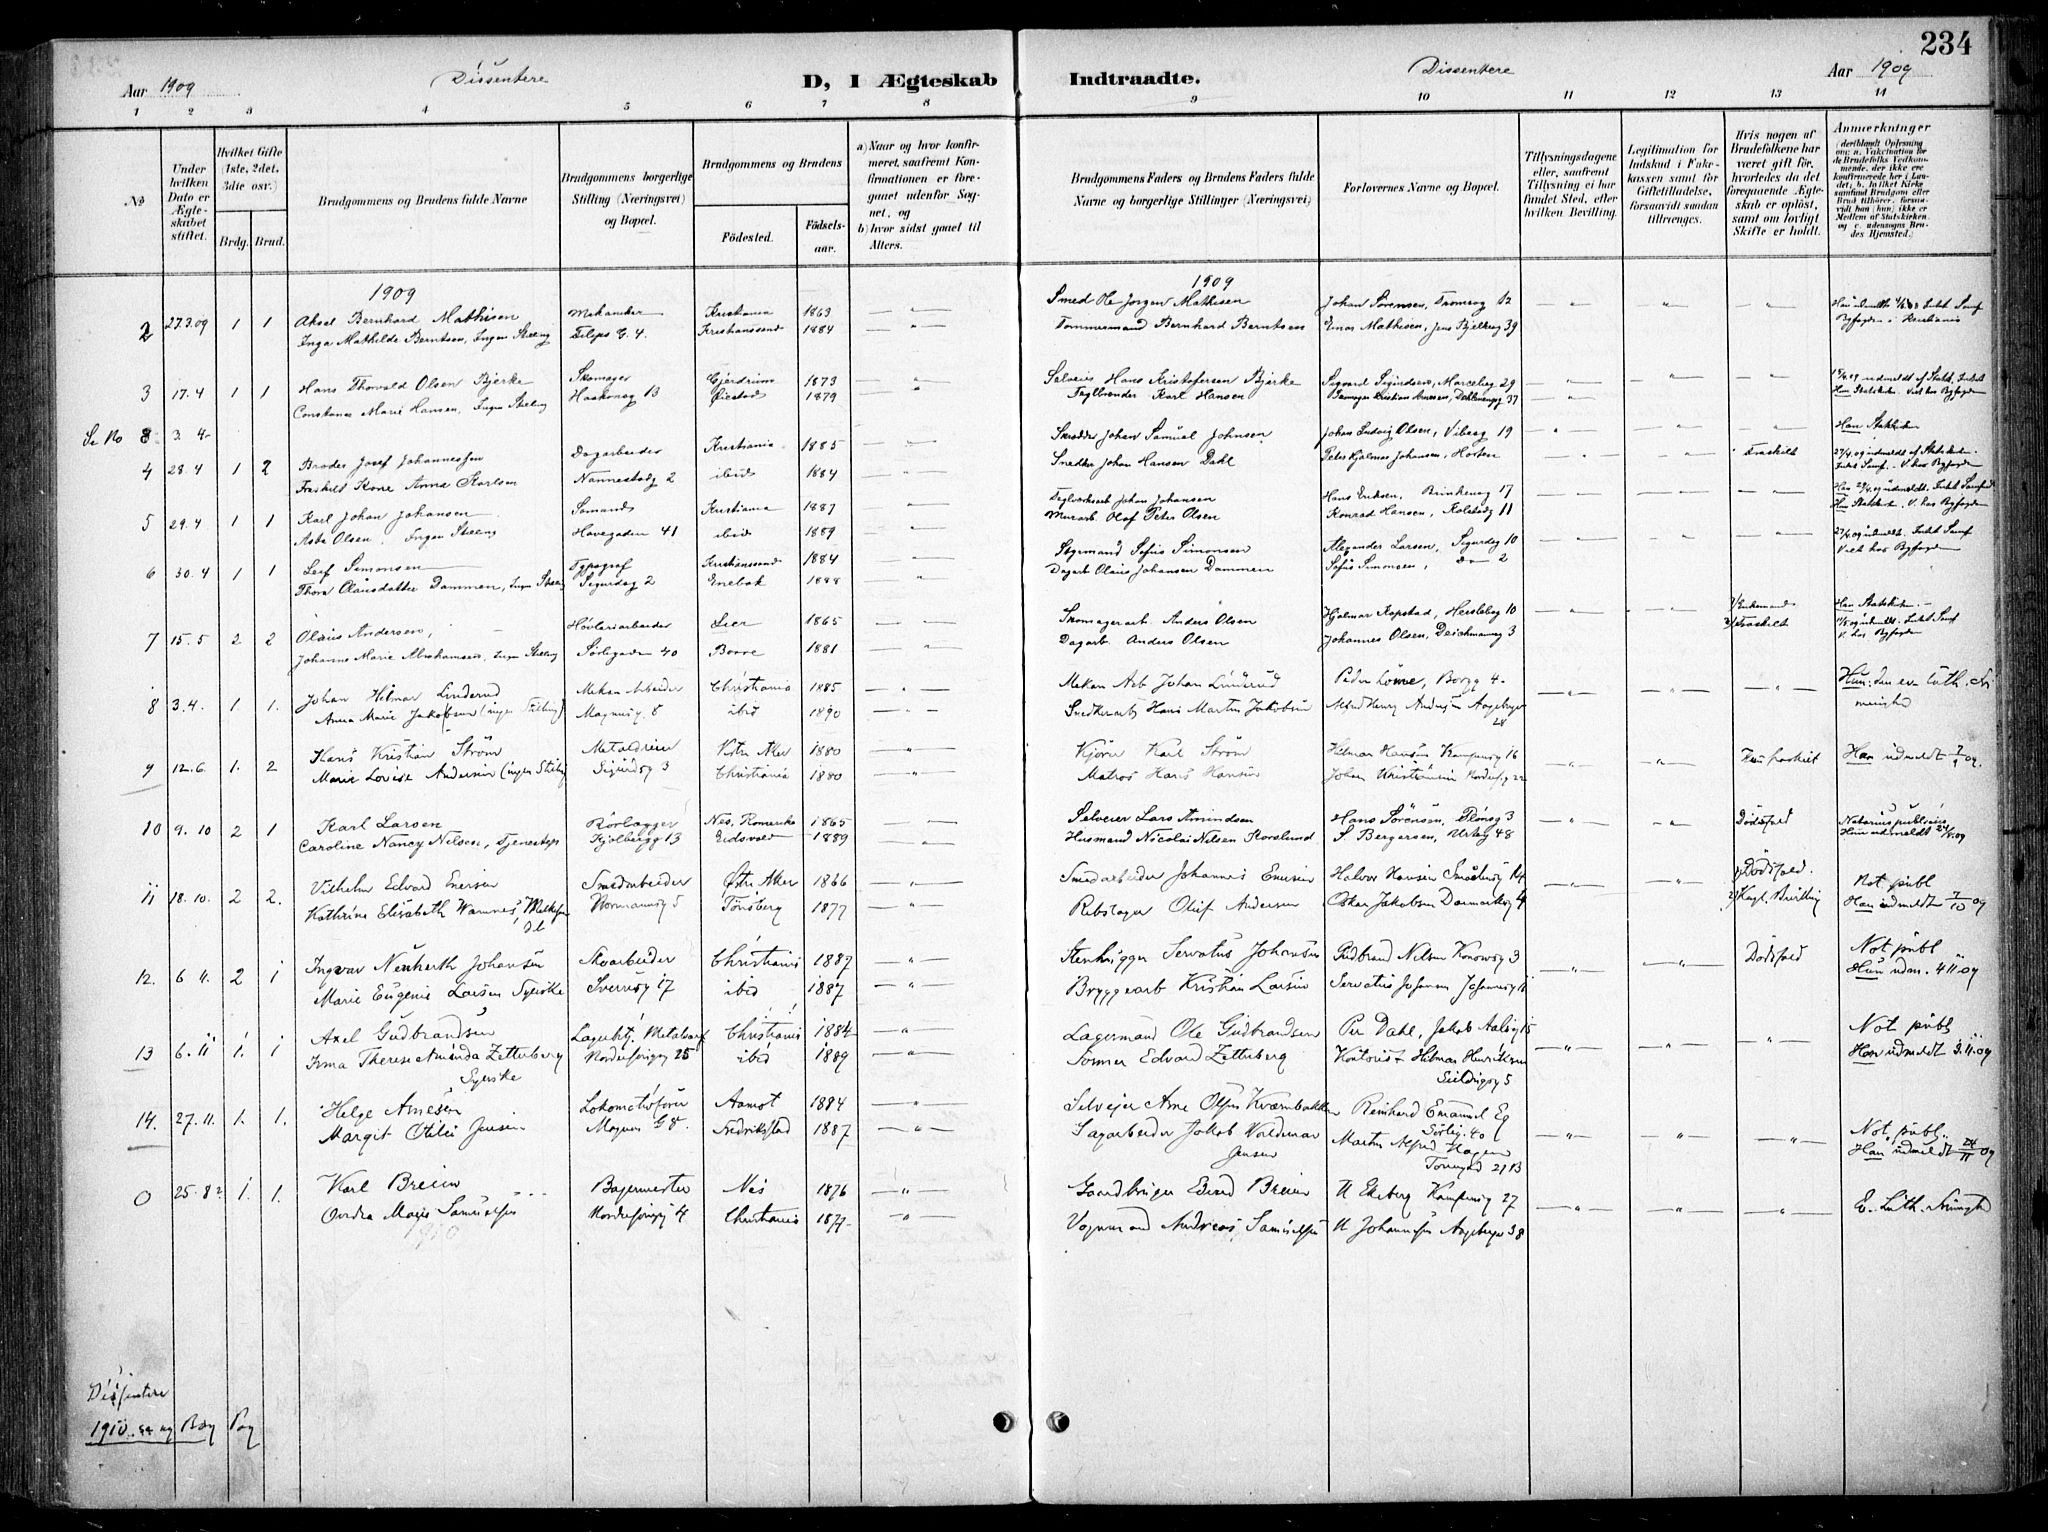 234
Aar 1909 Dissentere D, I Ægteskab Indtraadte. Dissentere Aar 1909
1 2 3 4 5 6 7 8 9 10 11 12 13 14
No
Under hvilken Dato er Ægteskabet stiftet.
Hvilket Gifte (1ste, 2det, 3die osv.)
Brdg. Brud.
Brudgommens og Brudens fulde Navne
Brudgommens borgerlige Stilling (Næringsvei) og Bopæl.
Brudgommens og Brudens
Fødested. Fødselsaar.
a) Naar og hvor konfirmeret, saafremt Konfirmationen er foregaaet udenfor Sognet, og
b) hvor sidst gaaet til Alters.
Brudgommens Faders og Brudens Faders fulde Navne og borgerlige Stillinger (Næringsvei)
Forlovernes Navne og Bopæl.
Tillysningsdagene eller, saafremt Tillysning ei har fundet Sted, efter hvilken Bevilling.
Legitimation for Indskud i Enkekassen samt for Giftetilladelse, forsaavidt saadan tiltrænges.
Hvis nogen af Brudefolkene har været gift før, hvorledes da det foregaaende Ægteskab er opløst, samt om lovligt Skifte er holdt.
Anmerkninger
(deriblandt Oplysning om: a. Vakcination for de Brudefolks Vedkommende, der ikke ere konfirmerede her i Landet; b. hvilket Kirkesamfund Brudgom eller Brud tilhører, forsaavidt han (hun) ikke er Medlem af Statskirken, og c. udensogns Brudes Hjemsted.)
1909 1909
2 27.3.09 1 1 Aksel Bernhard Mathisen Mekaniker Kristiania 1863 Smed Ole Jørgen Mathisen Johan Sørensen, Tromsög 12
Inga Mathilde Berntsen, Ingen Stilling Filips G. 4. Kristianssund 1884 Tømmermand Bernhard Berntsen Einar Mathisen, Jens Bjelkesg 39 Byfogden i Kristiania
3 17.4 1 1 Hans Thorvald Olsen Bjerke Skomager Gjerdrum 1873 Selveier Hans Kristofersen Bjerke Sigvard Sigurdsen, Marcelieg 29
Constanse Marie Hansen, Ingen Stilling Haakonsg 13 1879 Teglbrænder Karl Hansen
Se No 8 3. 4
4 28.4 1 2 Broder Josef Johannessen Dagarbeider Kristiania 1885 Skrædder Johan Samuel Johnsen Johan Ludvig Olsen, Vibesg 19 Han Statskirken
Fraskilt Kone Anna Karlsen Nannestadg 2 ibid 1884 Snedker Johan Hansen Dahl Peter Hjalmar Johansen, Horten Fraskilt
5 29.4 1 1 Karl Johan Johansen Sømand Kristiania 1887 Teglverksarb Johan Johansen Hans Eriksen, Brinkensg 17
Asta Olsen, Ingen Stilling Havegaden 41 ibid 1889 Murarb. Olaf Peter Olsen Konrad Hansen, Kolstadg 11
6 30.4 1 1 Leif Simonsen Typograf Kristianssund 1884 Styrmand Sofus Simonsen Alexander Larsen, Sigurdsg 10
Thora Olausdatter Dammen, Ingen Stilling Sigurdsg 2 Enebak 1888 Dagarb Olaus Johansen Dammen Sofus Simonsen, 2
7 15.5 2 2 Olaus Andersen, Høvleriarbeider Lier 1865 Skomagerarb. Anders Olsen Hjalmar Kopstad, Herslebsg 10 1/ Enkemand Han Statskirken
Johanne Marie Abrahamsen, Ingen Stilling Sørligaden 40 Borre 1881 Dagarb. Anders Olsen Johannes Olsen, Deichmansg 3 2/ Fraskilt
8 3.4. 1. 1. Johan Hilmar Linderud Mekan Arbeider Christiania 1885 Mekan Arb Johan Linderud Peder Lowe, Borgg 4
Anna Marie Jakobsen (ingen Stilling) Magnusg. 8 ibid 1890 Snedkerarb Hans Martin Jakobsen Alfred Henry Andersen Aagebergv 28
9 12.6. 1. 2 Hans Kristian Strøm Metaldreier Vestre Aker 1880 Kjører Karl Strøm Hilmar Hansen Kampensg 16 Hun fraskilt
Marie Lovise Andersen (ingen Stilling) Sigurdsg 3 Christiania 1880 Matros Hans Hansen Johan Kristiansen Nordrefsg 22
10 9.10 2 1 Karl Larsen Rørlægger Nes, Romerike 1865 Selveier Lars Amundsen Hans Sørensen, Fløensg 3 Dødsfald Notarius publicus
Caroline Nancy Nilsen, tjenestepi Kjølbergg 13 Eidsvold 1889 Husmand Nicolai Nilsen Storslund S. Bergersen, Urteg 48
11 18.10. 2 2. Vilhelm Edvard Enersen Smedarbeider Østre Aker 1866 Smedarbeider Johannes Enersen Halvor Hansen Smaalensg 14 1/ Dødsfald. Not publ
Kathrine Elisabeth Wamnes, Normannsg 5 Tønsberg 1877 Rebslager Oluf Andersen Oskar Jakobsen Danmarksg 4 2/ Kgl. Bevilling Han udmeldt 7/10 09
12. 6 11. 2 1 Ingvar Neuherth Johansen Skoarbeider Christiania 1887 Stenhugger Servatus Johansen Gudbrand Nilsen Konowsg 3 Dødsfald Not publ
Marie Eugenie Larsen Syerske Sverresg 17 ibid 1887 Bryggearb Kristian Larsen Servatius Johansen Johannesg 11 Hun udm. 4 11.09
13 6.11 1. 1 Axel Gudbrandsen Christiania 1884 Lagermand Ole Gudbrandsen Per Dahl, Jakob Aalsg 15 Not publ
Irma Therese Aminda Zetterberg ibid 1889 Former Edvard Zetterberg Kontorist Hilmar Henriksen Han udmeldt 3.11.09
Syerske Seildugsg 5
14. 27.11. 1. 1. Helge Arnesen Lokomotivfører Aamot 1884 Selveier Arne Olsen Kværnbakken Reinhard Emanuel Eg
Margit Otilie Jensen Magnus G 8. Fredrikstad 1887 Sagarbeider Jakob Voldemar Sørlig. 40 Not. publ.
Jensen Martin Alfred Hagen Han udmeldt 24/11 09
0 25.8 1. 1. Karl Breien Bagermester Nes 1876 Gaardbruger Edvard Breien H Ekeberg Kampensg 27 E. Luth. Menighed
Marie Samuelsen 4 Christiania 1877 Vognmand Andreas Samuelsen H Johannessen Aagebergv 38
1910
Dissentere
1910. se og Bag Pag